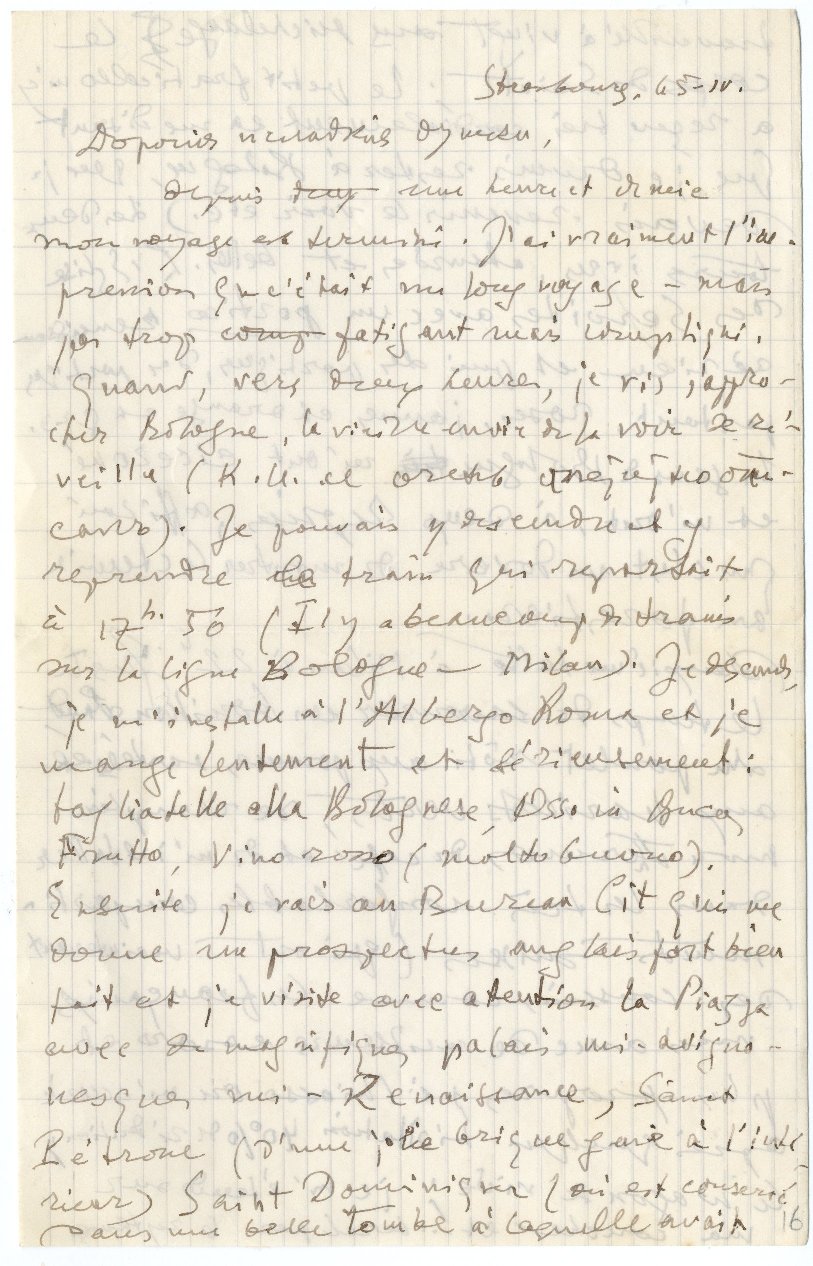 Strasbourg, 45-IV.
depuis deux une heure et demie
mon voyage est terminé. J'ai vraiment l'im-
pression que c'était un long voyage – mais
pas trop comp fatigant mais compliqué.
Quand, vers deux heures, je vis s'appro-
cher Bologne, la vieille envie de la voir se ré-
veilla (
). Je pouvais y descendre et y
reprendre le train qui repartait
à 17h. 50 (Il y a beaucoup de trains
sur la ligne Bologne – Milan). Je descends,
je m'installe à l'Albergo Roma et je
mange lentement et sérieusement :
tagliatelle alla Bolognese, Osso in Buca,
Frutto, Vino rosso (molto buono).
Ensuite je vais au Bureau Cit qui me
donne un prospectus anglais fort bien
fait et je visite avec atention la Piazza
avec de magnifiques palais mi-avigno-
nesques mi-Renaissance, Saint
Pétrone (d'une jolie brique gaie à l'inté-
rieur) Saint Dominique (où est conservé,
dans une belle tombe à laquelle avait
16